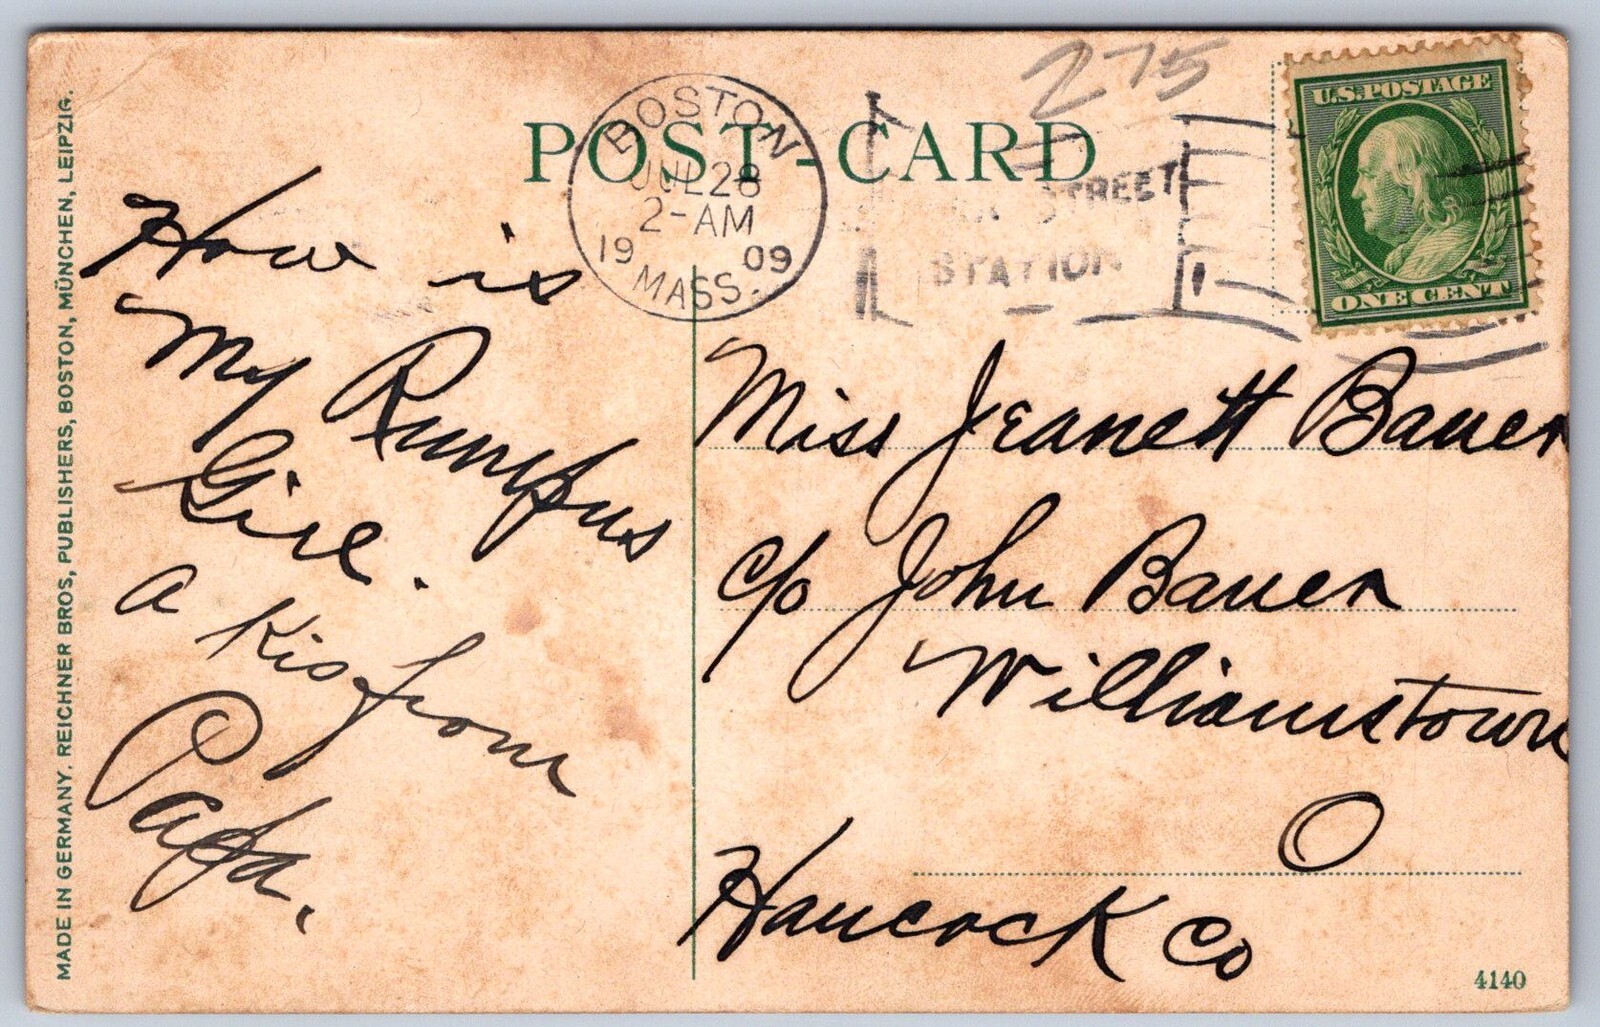 MADE IN GERMANY, REICHNER BROS, PUBLISHERS, BOSTON, MÜNCHEN, LEIPZIG.
POST-CARD
275
BOSTON
JUL 28
2-AM
19 09
MASS.
STREET
STATION
U.S. POSTAGE
ONE CENT
How is
My Rumpus
Girl.
a Kis from
Papa.
Miss Jeanett Bauer
c/o John Bauer
Williamstown
O
Hancock Co
4140